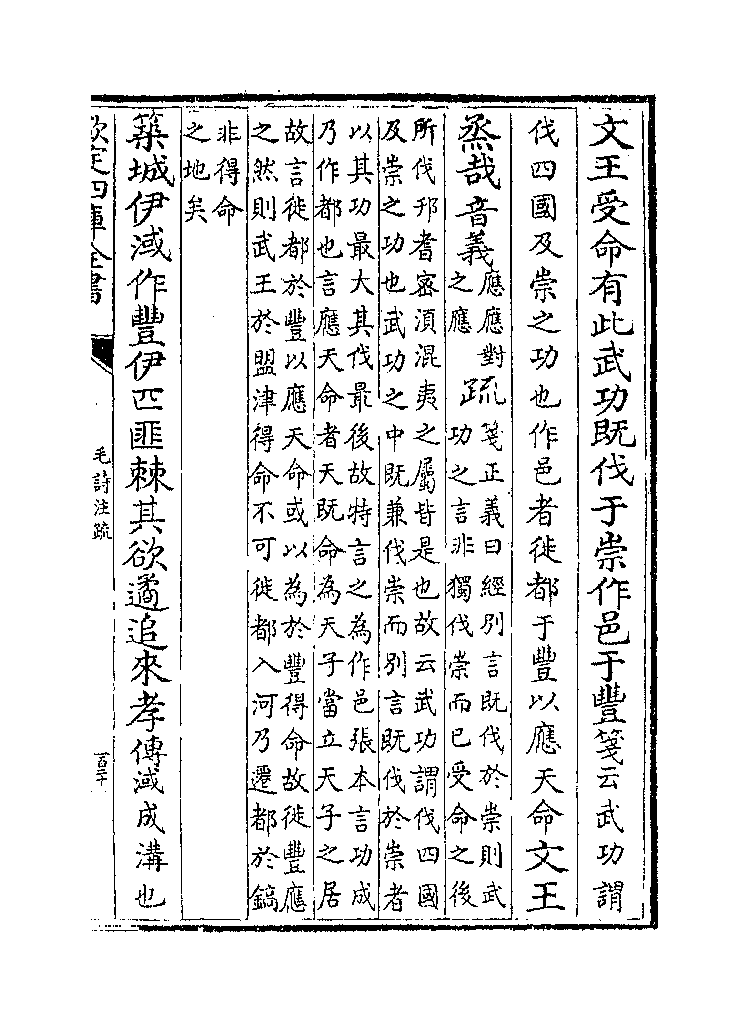 文王受命有此武功既伐于崇作邑于豐箋云武功謂
伐四國及崇之功也作邑者徙都于豐以應天命文王
烝哉音義
應應對
之應
疏
箋正義曰經別言既伐於崇則武
功之言非獨伐崇而已受命之後
所伐邘耆密須混夷之屬皆是也故云武功謂伐四國
及崇之功也武功之中既兼伐崇而別言既伐於崇者
以其功最大其伐最後故特言之為作邑張本言功成
乃作都也言應天命者天既命為天子當立天子之居
故言徙都於豐以應天命或以為於豐得命故徙豐應
之然則武王於盟津得命不可徙都入河乃遷都於鎬
非得命
之地矣
築城伊淢作豐伊匹匪棘其欲遹追來孝傳淢成溝也
欽定四庫全書
毛詩注疏